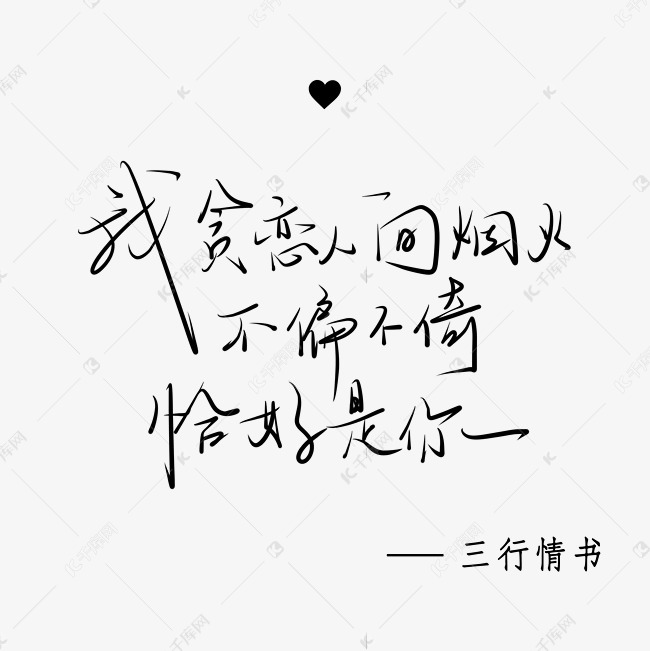 我贪恋人间烟火
不偏不倚
恰好是你
—— 三行情书
千库网